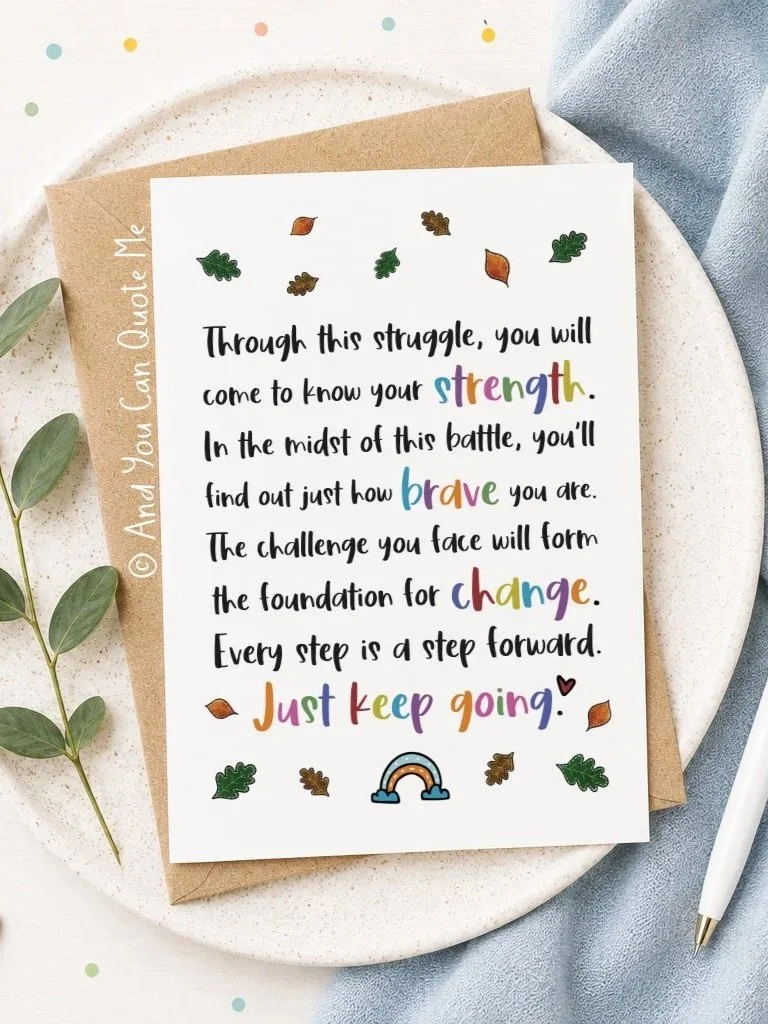 © And You Can Quote Me
Through this struggle, you will
come to know your strength.
In the midst of this battle, you'll
find out just how brave you are.
The challenge you face will form
the foundation for change.
Every step is a step forward.
Just keep going.